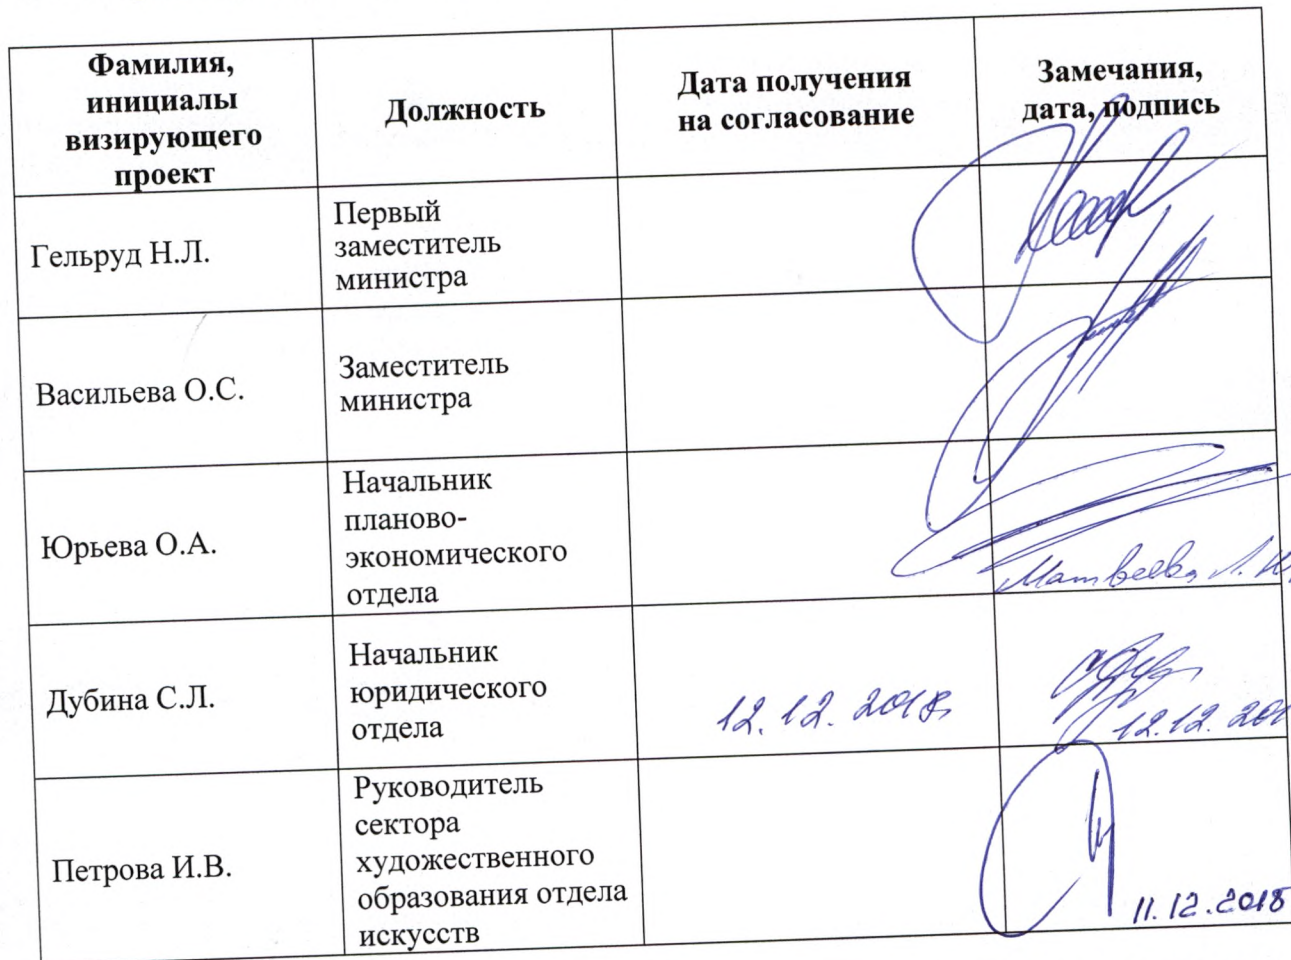 Фамилия,
инициалы
визирующего
проект
Должность
Дата получения
на согласование
Замечания,
дата, подпись
Гельруд Н.Л.
Первый
заместитель
министра
Васильева О.С.
Заместитель
министра
Юрьева О.А.
Начальник
планово-
экономического
отдела
Матвеева Л.
Дубина С.Л.
Начальник
юридического
отдела
12.12.2018
12.12.201
Петрова И.В.
Руководитель
сектора
художественного
образования отдела
искусств
11.12.2018